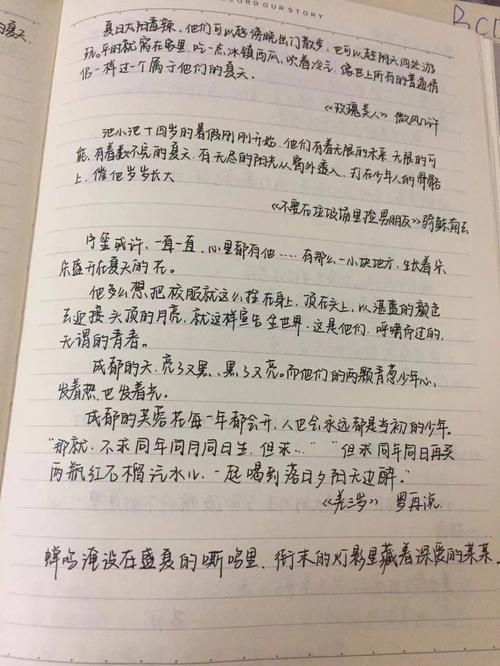 RECORD OUR STORY
BCD
夏天.
夏日太阳毒辣,他们可以趁傍晚出门散步,也可以趁阴天四处游
玩.平时就窝在家里,吃一点冰镇西瓜,吹着冷气,像世上所有的普通情
侣一样过一个属于他们的夏天.
《玫瑰美人》微风几许
池小池十四岁的暑假刚刚开始.他们有着无限的未来,无限的可
能,有着数不完的夏天,有无尽的阳光从窗外透入,打在少年人的骨骼
上,催他岁岁长大.
《不要在垃圾场里捡男朋友》骑鲸南去
宁玺或许,一直一直,心里都有他……有那么一小块地方,生长着朵
朵盛开在夏天的花。
他多么想,把校服就这么拴在身上,顶在头上,以湛蓝的颜色
去迎接头顶的月亮,就这样宣告全世界,这是他们,呼啸而过的,
无谓的青春。
成都的天,亮了又黑,黑了又亮。而他们的两颗青葱少年心,
发着热,也发着光。
成都的芙蓉花每一年都会开,人也会永远都是当初的少年。
“那就,不求同年同月同日生,但求……”“但求同年同日再买
两瓶红石榴汽水儿,一起喝到落日夕阳天边醉。”
《差三岁》罗再说.
蝉鸣淹没在盛夏的嘶鸣里,街末的灯影里藏着深爱的某某.